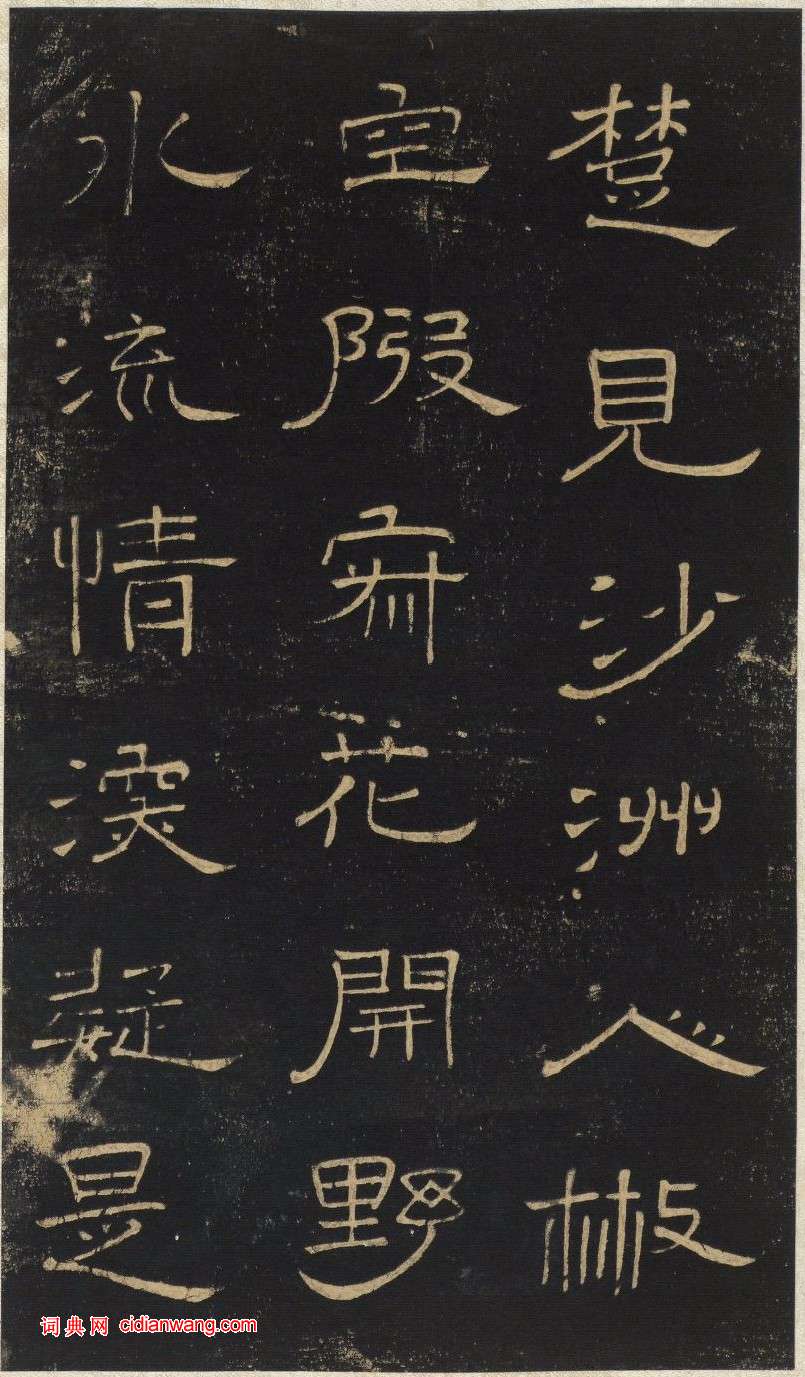 楚見沙洲人散
空寂花開野
水流情深疑是
词典网 cidianwang.com